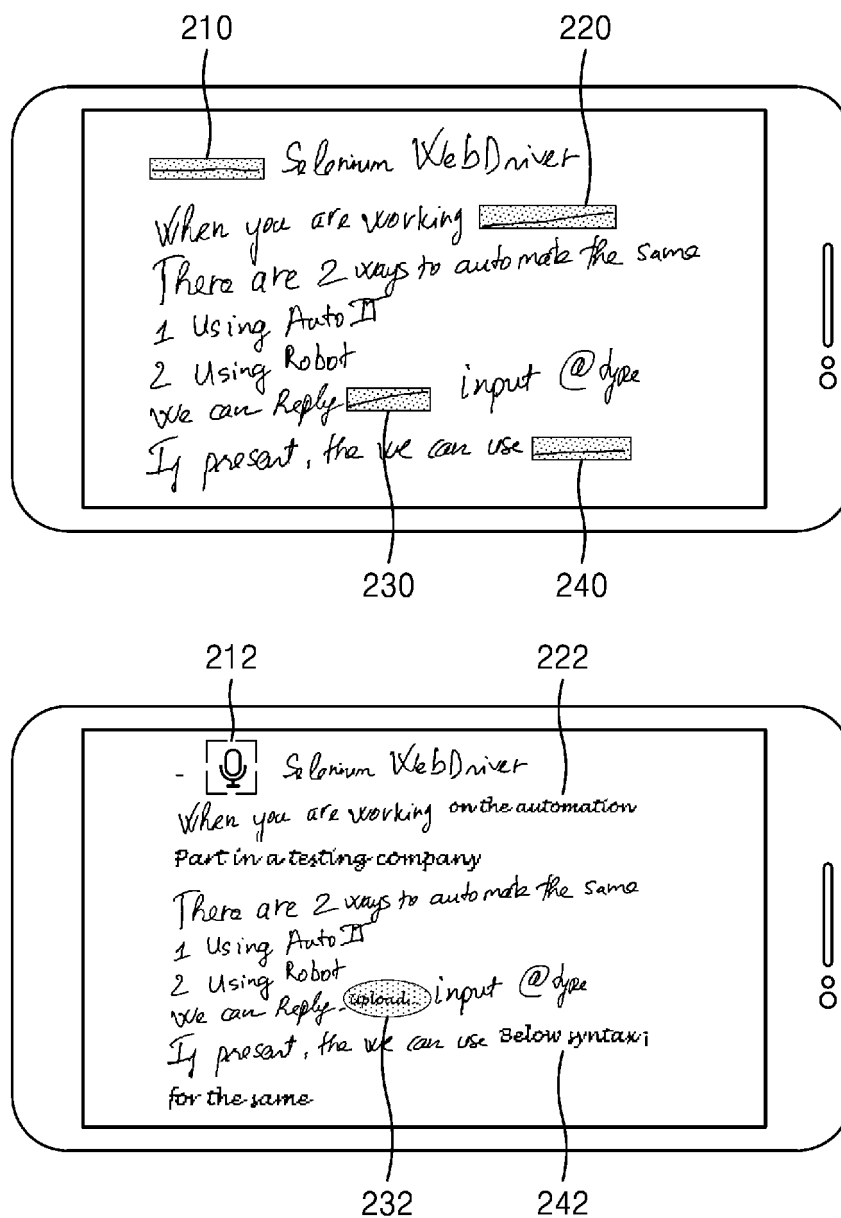 210 220
Selenium WebDriver
When you are working
There are 2 ways to automate the same
1 Using AutoIT
2 Using Robot
We can Reply input @type
If present, the we can use
230 240
212 222
- Selenium WebDriver
When you are working on the automation
Part in a testing company
There are 2 ways to automate the same
1 Using AutoIT
2 Using Robot
We can Reply upload... input @type
If present, the we can use Below syntax;
for the same
232 242